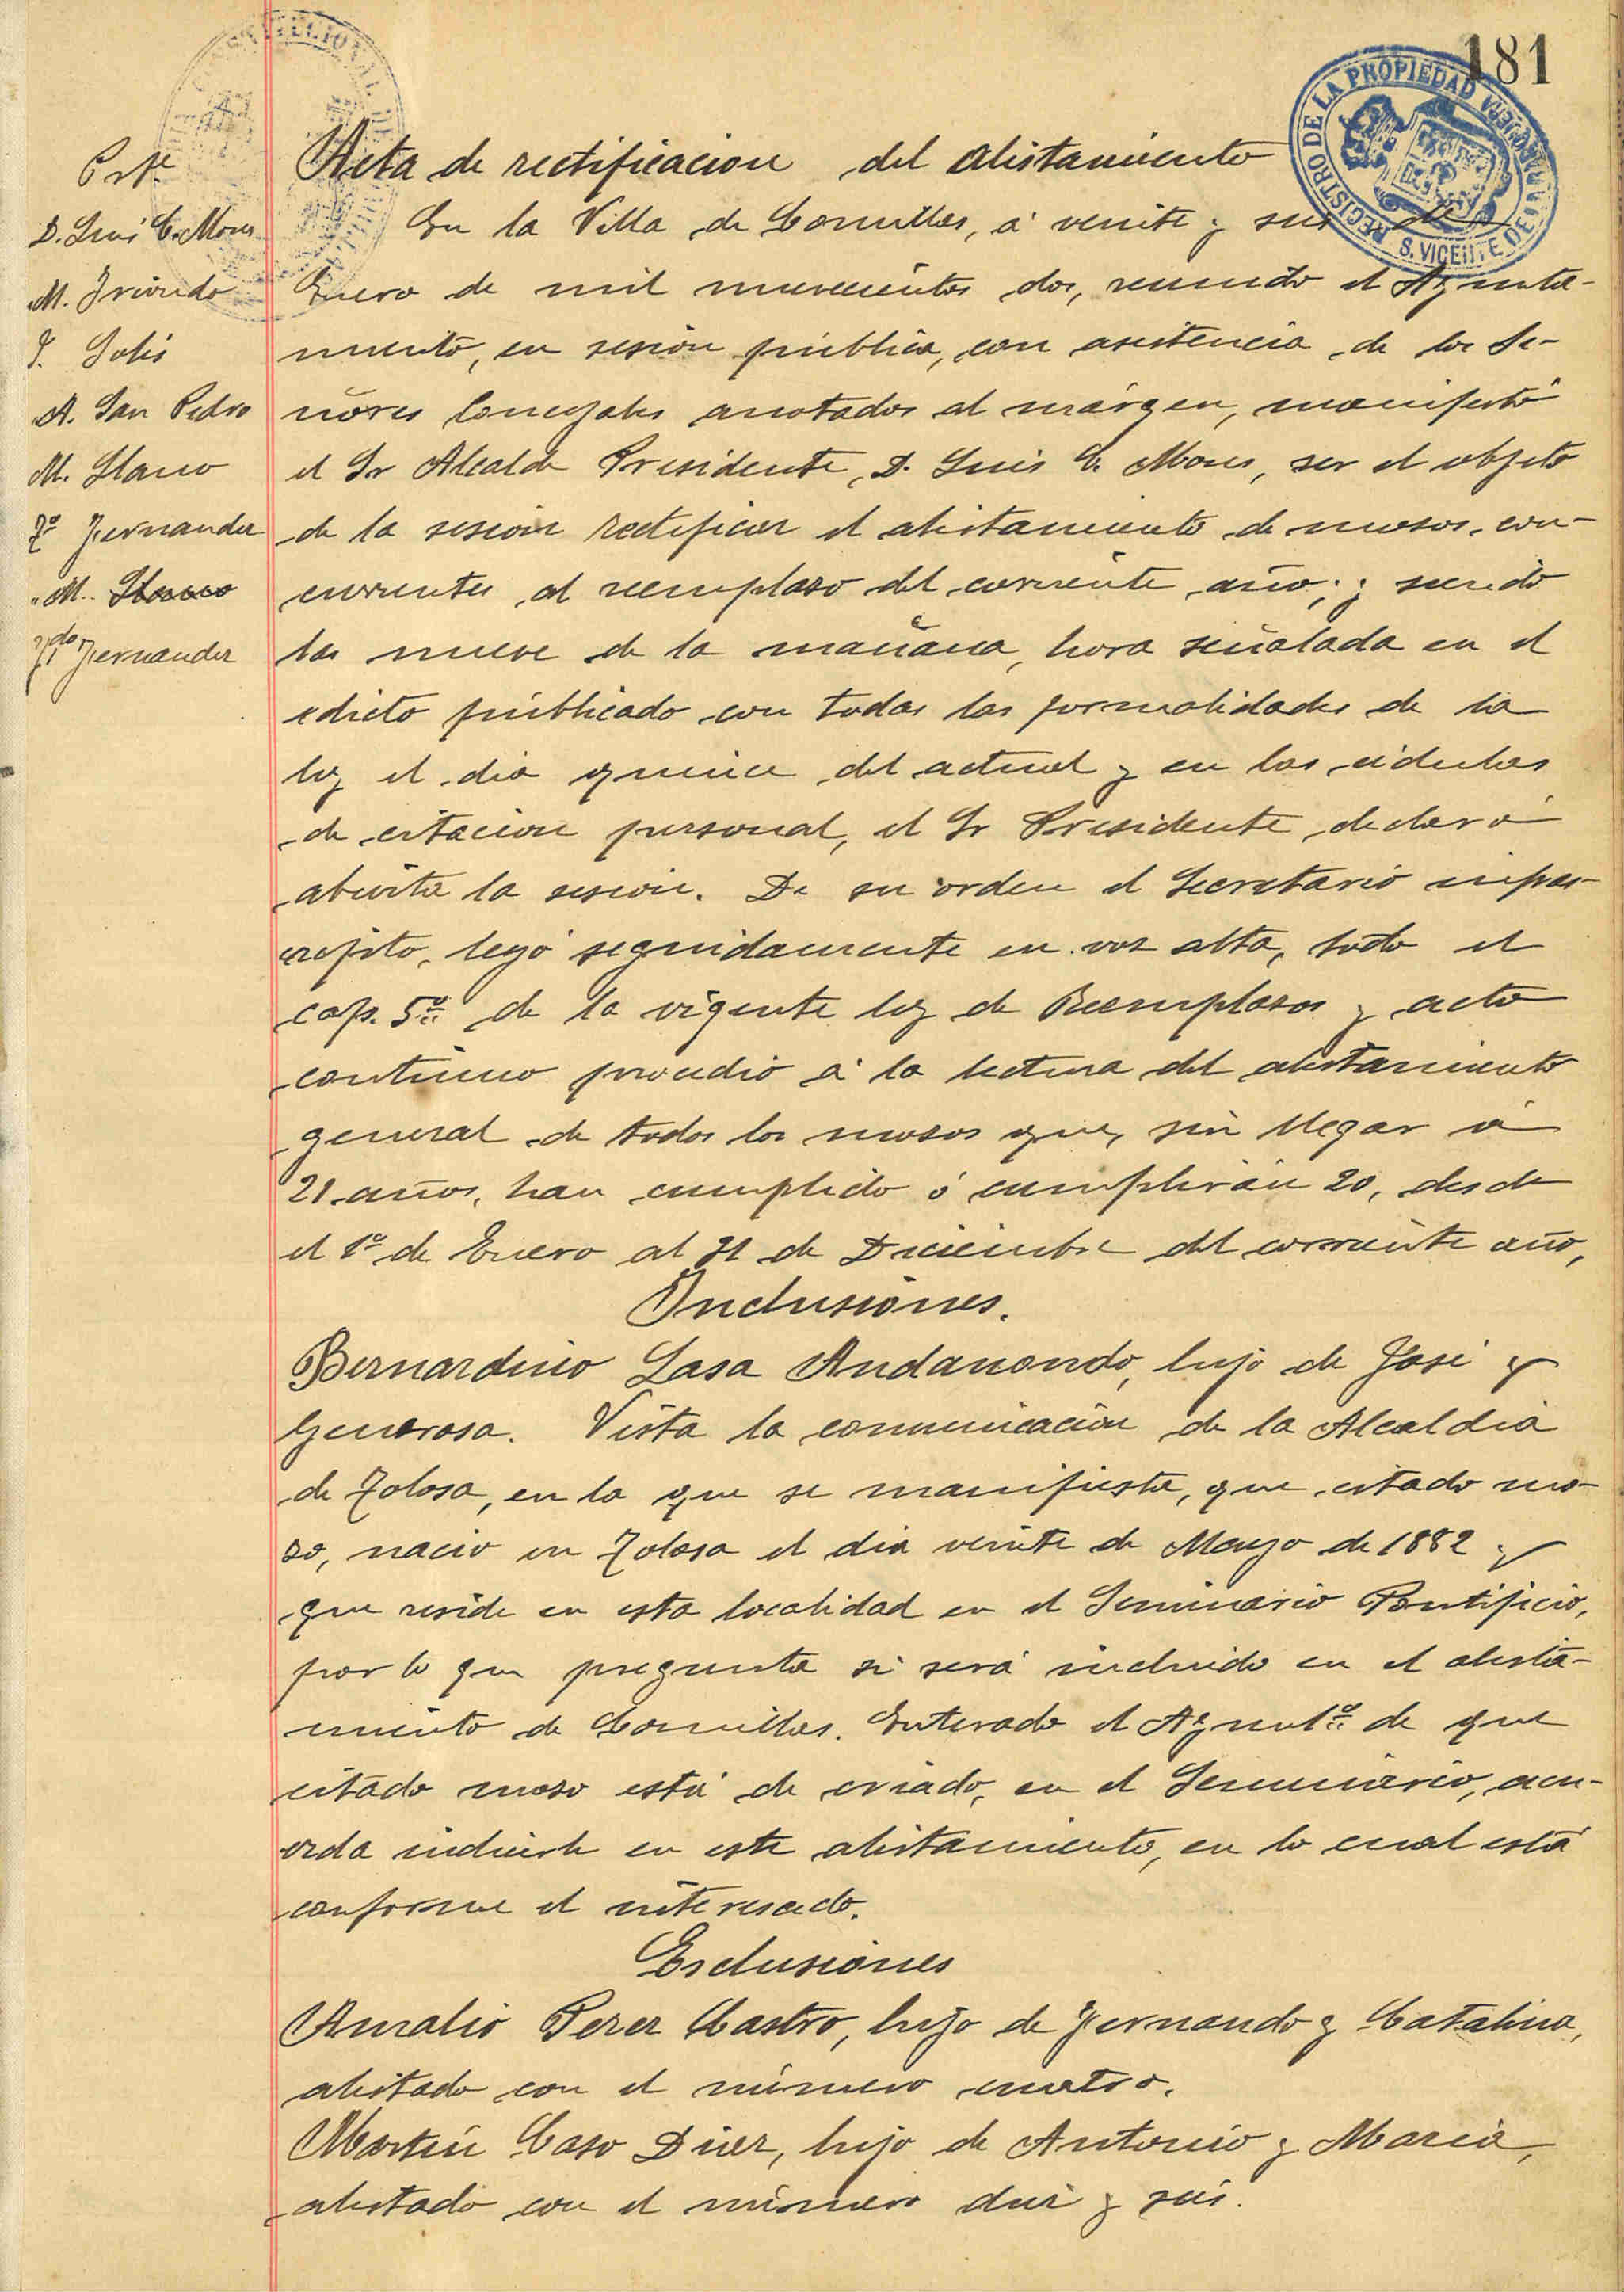 181
REGISTRO DE LA PROPIEDAD
S. VICENTE DE LA BARQUERA
Prte
D. Luis C. Mones
M. Iriondo
J. Solis
A. San Pedro
M. Llano
Fo Fernandez
"M. Llano
Fdo Fernandez
Acta de rectificacion del alistamiento
En la Villa de Comillas, á veinte y seis de
Enero de mil novecientos dos, reunido el Ayunta-
miento, en sesión pública, con asistencia de los Se-
ñores Concejales anotados al márgen, manifestó
el Sr Alcalde Presidente, D. Luis C. Mones, ser el objeto
de la sesion rectificar el alistamiento de mosos, con-
currentes al reemplaso del corriente año; y siendo
las nueve de la mañana, hora señalada en el
edicto públicado con todas las formalidades de la
ley el dia quince del actual y en las cédulas
de citacion personal, el Sr Presidente declaró
abierta la sesion. De su orden el Secretario infras-
cripto, leyó seguidamente en voz alta, todo el
cap. 5º de la vigente ley de Reemplasos y acto
continuo procedió á la lectura del alistamiento
general de todos los mosos que, sin llegar á
21 años, han cumplido ó cumplirán 20, desde
el 1º de Enero al 31 de Diciembre del corriente año,
Inclusiones.
Bernardino Lasa Andanondo, hijo de José y
Generosa. Vista la comunicación de la Alcaldia
de Tolosa, en la que se manifiesta, que citado mo-
so, nació en Tolosa el dia veinte de Mayo de 1882 y
que reside en esta localidad en el Seminario Pontificio,
por lo que pregunta si será incluido en el alista-
miento de Comillas. Enterado el Ayuntº de que
citado moso está de criado, en el Seminario, acu-
erda incluirle en este alistamiento, en lo cual está
conforme el interesado.
Esclusiones
Amalio Perez Castro, hijo de Fernando y Catalina,
alistado con el número cuatro.
Martin Caso Diez, hijo de Antonio y Maria,
alistado con el número diez y seis.